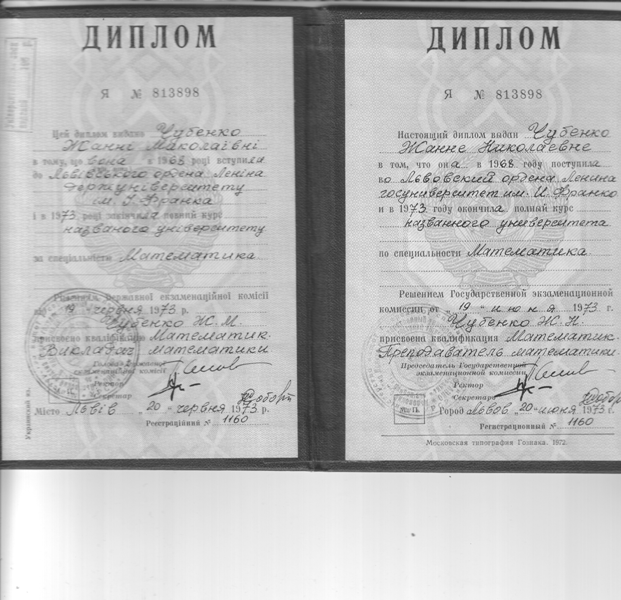 ДИПЛОМ
Я № 813898
Цей диплом видано Чубенко
Жанні Миколаївні
в тому, що вона в 1968 році вступила
до Львівського ордена Леніна
держуніверситету
ім. І. Франка
і в 1973 році закінчила повний курс
названого університету
за спеціальністю Математика
Рішенням Державної екзаменаційної комісії
від 19 червня 1973 р.
Чубенко Ж. М.
присвоєно кваліфікацію Математик.
Викладач математики
Голова Державної
екзаменаційної комісії
Ректор
Секретар
Місто Львів „20“ червня 1973 р.
Реєстраційний № 1160
ДИПЛОМ
Я № 813898
Настоящий диплом выдан Чубенко
Жанне Николаевне
в том, что она в 1968 году поступила
во Львовский ордена Ленина
госуниверситет им. И. Франко
и в 1973 году окончила полный курс
названного университета
по специальности Математика
Решением Государственной экзаменационной
комиссии от 19 июня 1973 г.
Чубенко Ж. Н.
присвоена квалификация Математик.
Преподаватель математики
Председатель Государственной
экзаменационной комиссии
Ректор
Секретарь
М. П.
Город Львов „20“ июня 1973 г.
Регистрационный № 1160
Московская типография Гознака. 1972.